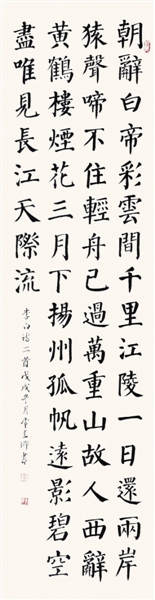 朝辭白帝彩雲間千里江陵一日還兩岸
猿聲啼不住輕舟已過萬重山故人西辭
黃鶴樓煙花三月下揚州孤帆遠影碧空
盡唯見長江天際流
李白詩二首戊戌冬月李書